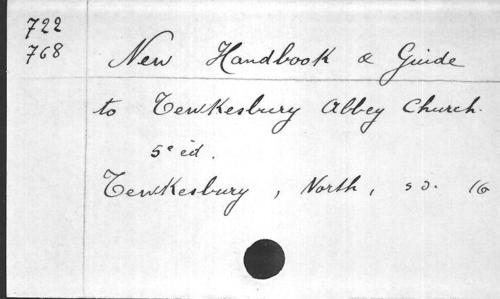 722
768
New Handbook & Guide
to Tewkesbury Abbey Church.
5e éd.
Tewkesbury, North, s d. 16